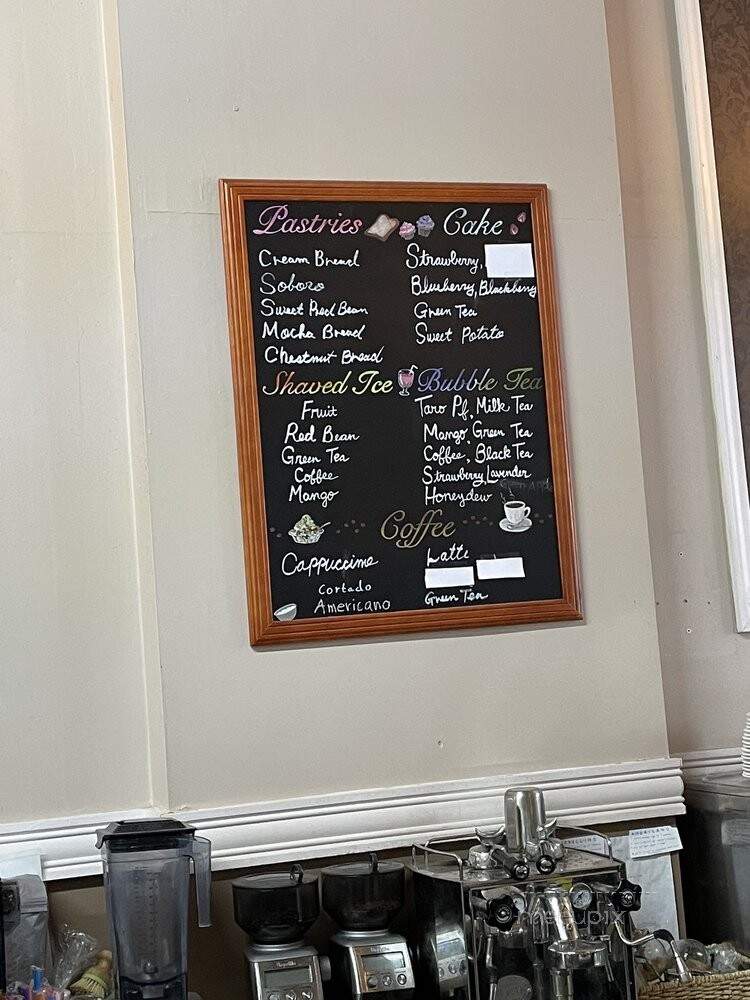 Pastries
Cream Bread
Soboro
Sweet Red Bean
Mocha Bread
Chestnut Bread
Cake
Strawberry,
Blueberry, Blackberry
Green Tea
Sweet Potato
Shaved Ice
Fruit
Red Bean
Green Tea
Coffee
Mango
Bubble Tea
Taro Pf, Milk Tea
Mango, Green Tea
Coffee, Black Tea
Strawberry, Lavender
Honeydew
Coffee
Cappuccino
Cortado
Americano
Latte
Green Tea
menupix